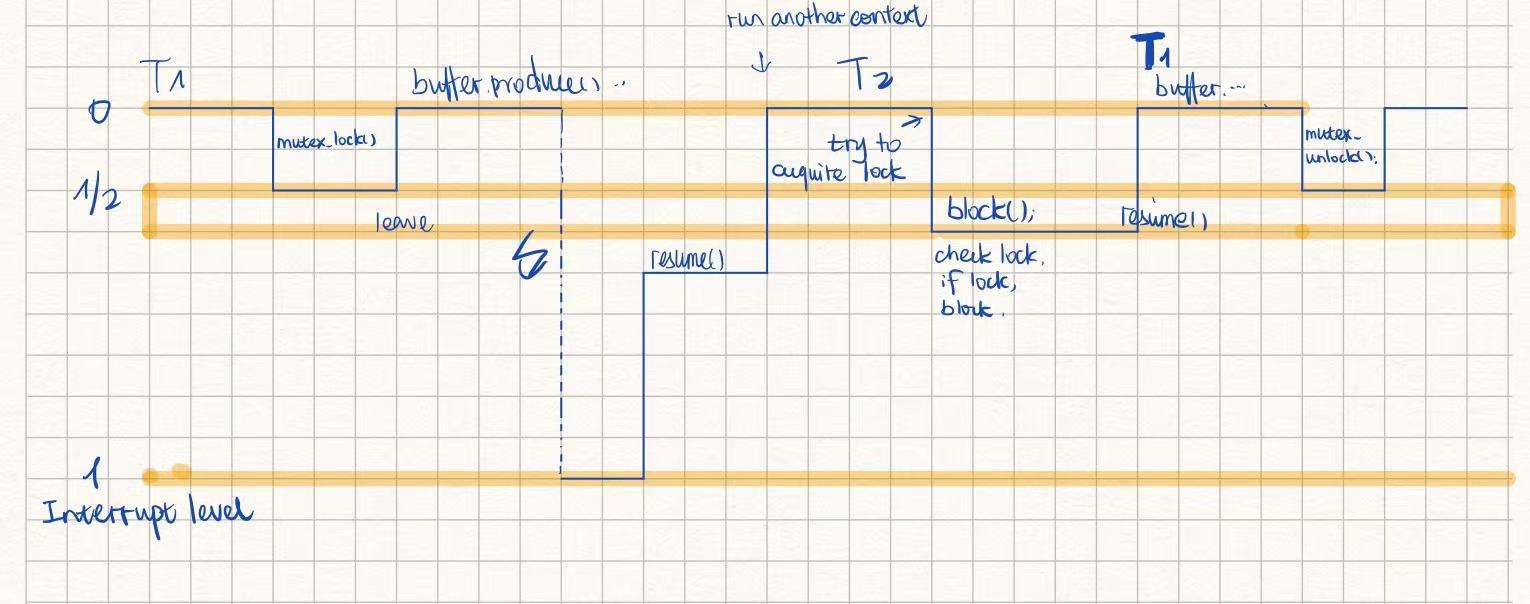 run another context
T1
buffer.produce() ..
↓
T2
T1
buffer....
0
mutex_lock()
try to
acquite lock
mutex_
unlock();
1/2
leave
block();
resume()
resume()
check lock.
if lock,
block.
1
Interrupt level